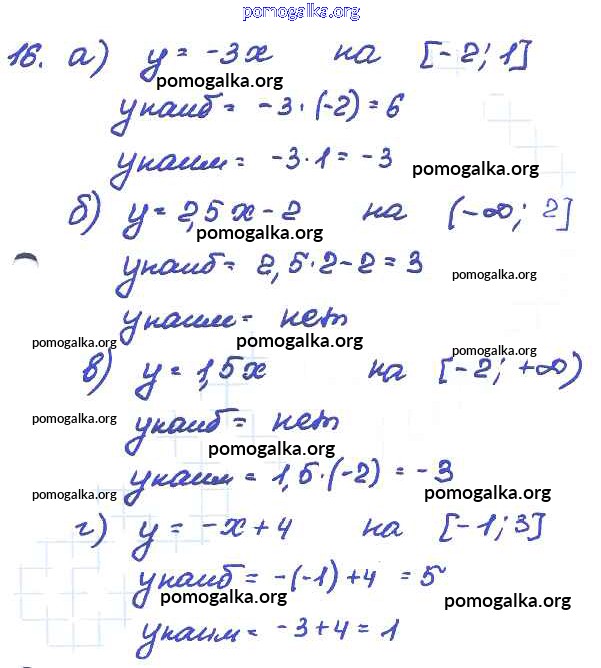 pomogalka.org
16. а) y = -3x на [-2; 1]
pomogalka.org
yнаиб = -3·(-2) = 6
yнаим = -3·1 = -3
pomogalka.org
б) y = 2,5x-2 на (-∞; 2]
pomogalka.org
yнаиб = 2,5·2-2 = 3
pomogalka.org
yнаим = нет
pomogalka.org
pomogalka.org
pomogalka.org
в) y = 1,5x на [-2; +∞)
pomogalka.org
yнаиб = нет
pomogalka.org
yнаим = 1,5·(-2) = -3
pomogalka.org
pomogalka.org
г) y = -x+4 на [-1; 3]
yнаиб = -(-1)+4 = 5
pomogalka.org
pomogalka.org
yнаим = -3+4 = 1